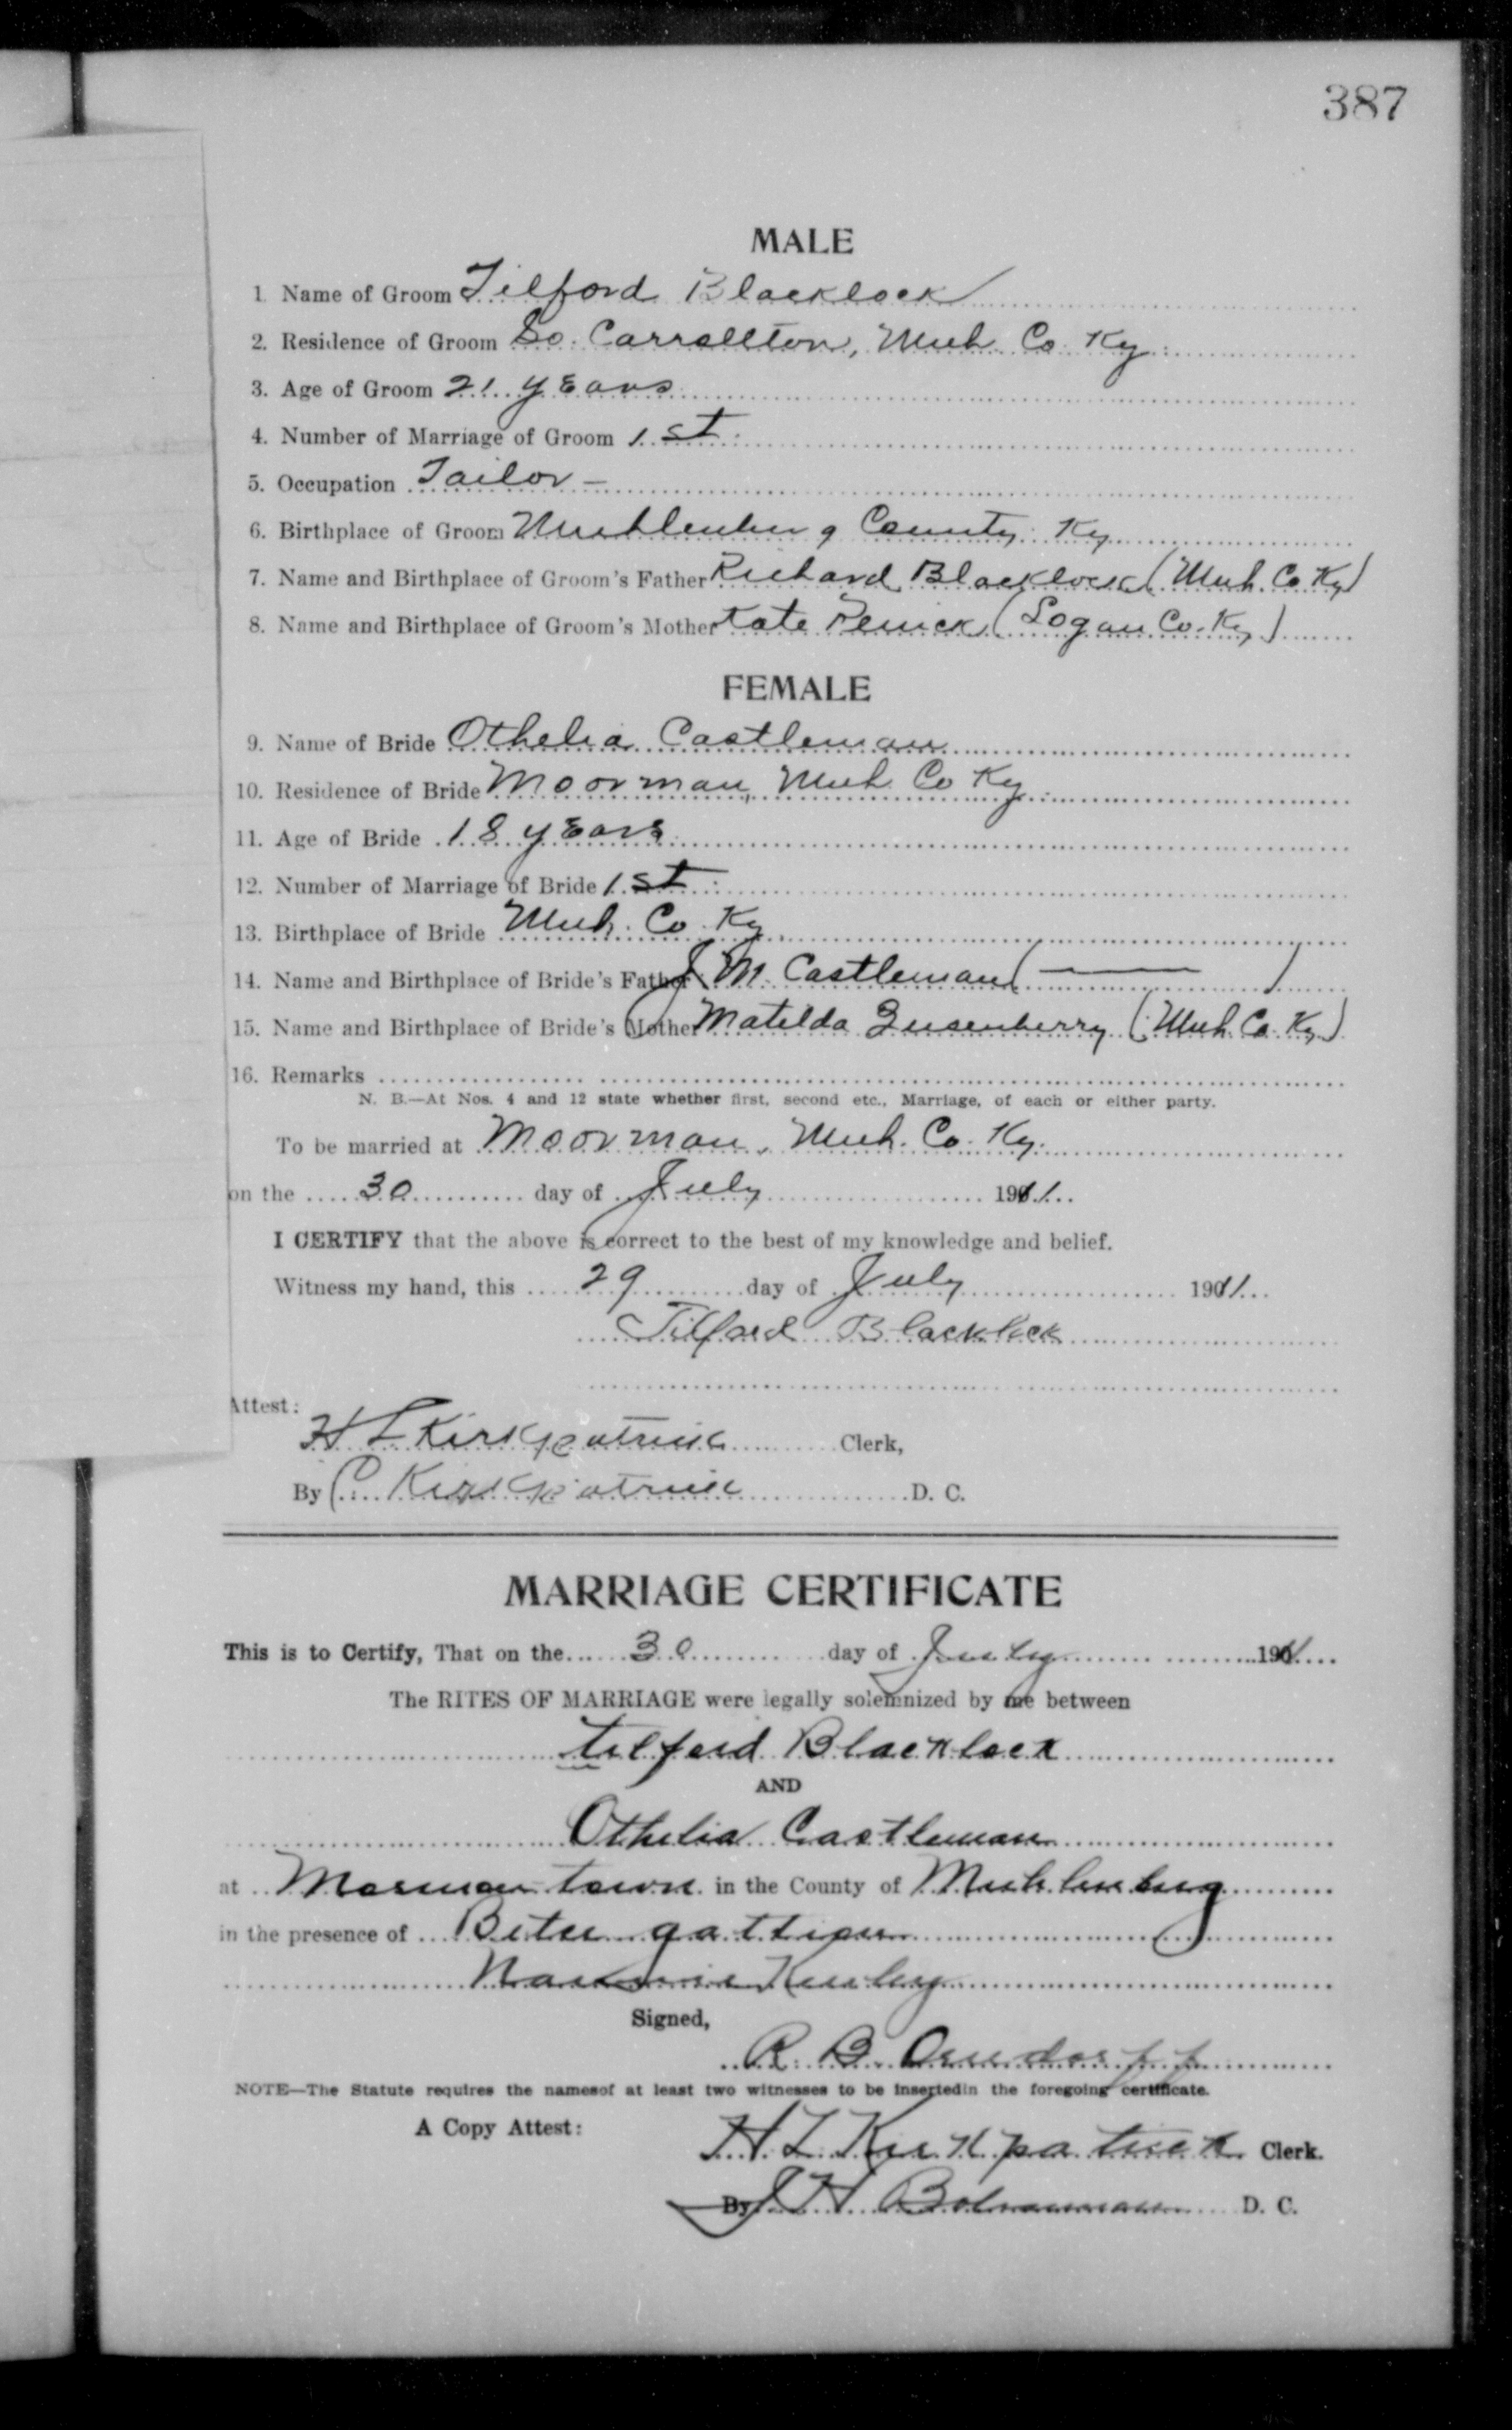 387
MALE
1 Name of Groom Tilford Blacklock
2. Residence of Groom So. Carrollton, Muh. Co. Ky.
3. Age of Groom 21 years
4. Number of Marriage of Groom 1st.
5. Occupation Tailor –
6. Birthplace of Groom Muhlenburg County. Ky
7. Name and Birthplace of Groom's Father Richard Blacklock (Muh. Co. Ky)
8. Name and Birthplace of Groom's Mother Kate Penick (Logan Co. Ky)
FEMALE
9. Name of Bride Othelia Castleman
10. Residence of Bride Moorman, Muh Co Ky.
11. Age of Bride 18 years
12. Number of Marriage of Bride 1st.
13. Birthplace of Bride Muh. Co. Ky
14. Name and Birthplace of Bride's Father J M. Castleman ( — )
15. Name and Birthplace of Bride's Mother Matilda Quisenberry (Muh. Co. Ky)
16. Remarks
N. B.—At Nos. 4 and 12 state whether first, second etc., Marriage, of each or either party.
To be married at Moorman, Muh. Co. Ky.
on the 30 day of July 1911
I CERTIFY that the above is correct to the best of my knowledge and belief.
Witness my hand, this 29 day of July 1911
Tilford Blacklock
Attest:
H L Kirkpatrick Clerk,
By C. Kirkpatrick D. C.
MARRIAGE CERTIFICATE
This is to Certify, That on the 30 day of July 1911
The RITES OF MARRIAGE were legally solemnized by me between
Tilford Blacklock
AND
Othelia Castleman
at Morman town in the County of Muhlenburg
in the presence of

Signed,
R. B. Orndorff
NOTE—The Statute requires the namesof at least two witnesses to be insertedin the foregoing certificate.
A Copy Attest:
H. L. Kirkpatrick Clerk.
By J H Bohannan D. C.